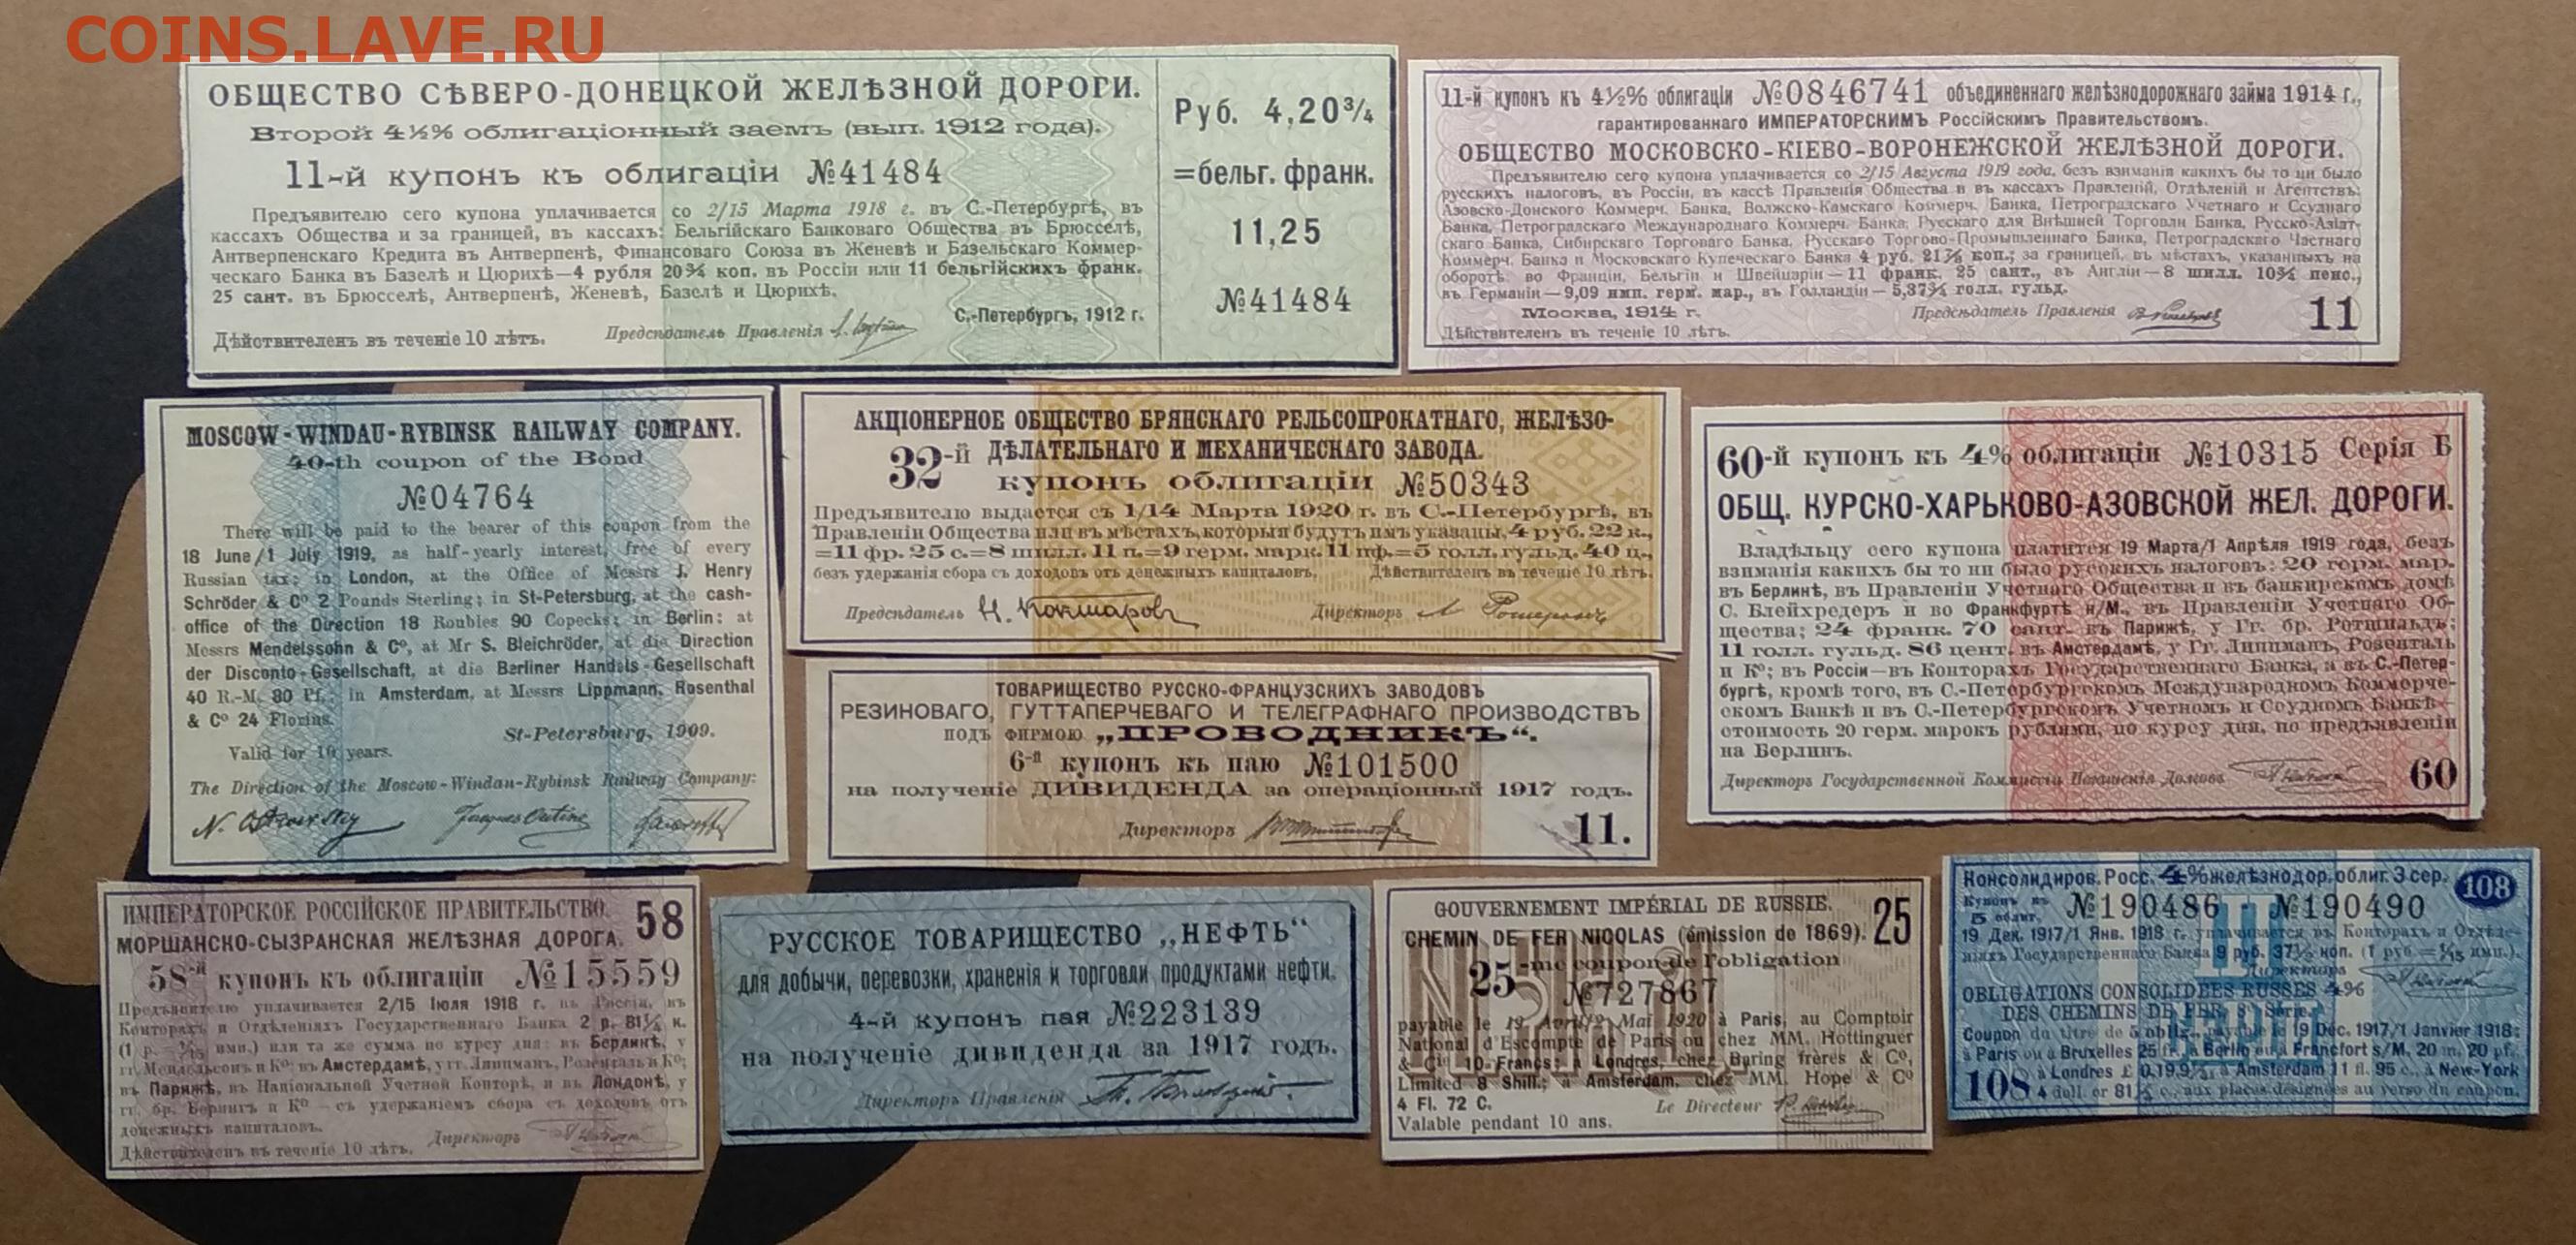 COINS.LAVE.RU
ОБЩЕСТВО СѢВЕРО-ДОНЕЦКОЙ ЖЕЛѢЗНОЙ ДОРОГИ.
Второй 4½% облигаціонный заемъ (вып. 1912 года).
11-й купонъ къ облигаціи №41484
Предъявителю сего купона уплачивается со 2/15 Марта 1918 г. въ С.-Петербургѣ, въ
кассахъ Общества и за границей, въ кассахъ: Бельгійскаго Банковаго Общества въ Брюсселѣ,
Антверпенскаго Кредита въ Антверпенѣ, Финансоваго Союза въ Женевѣ и Базельскаго Коммер-
ческаго Банка въ Базелѣ и Цюрихѣ—4 рубля 20¾ коп. въ Россіи или 11 бельгійскихъ франк.
25 сант. въ Брюсселѣ, Антверпенѣ, Женевѣ, Базелѣ и Цюрихѣ.
С.-Петербургъ, 1912 г.
Дѣйствителенъ въ теченіе 10 лѣтъ.
Предсѣдатель Правленія
Руб. 4,20¾
=бельг. франк.
11,25
№41484
11-й купонъ къ 4½% облигаціи №0846741 объединеннаго желѣзнодорожнаго займа 1914 г.,
гарантированнаго ИМПЕРАТОРСКИМЪ Россійскимъ Правительствомъ.
ОБЩЕСТВО МОСКОВСКО-КІЕВО-ВОРОНЕЖСКОЙ ЖЕЛѢЗНОЙ ДОРОГИ.
Предъявителю сего купона уплачивается со 2/15 Августа 1919 года, безъ взиманія какихъ бы то ни было
русскихъ налоговъ, въ Россіи, въ кассѣ Правленія Общества и въ кассахъ Правленій, Отдѣленій и Агентствъ:
Азовско-Донского Коммерч. Банка, Волжско-Камскаго Коммерч. Банка, Петроградскаго Учетнаго и Ссуднаго
Банка, Петроградскаго Международнаго Коммерч. Банка, Русскаго для Внѣшней Торговли Банка, Русско-Азіат-
скаго Банка, Сибирскаго Торговаго Банка, Русскаго Торгово-Промышленнаго Банка, Петроградскаго Частнаго
Коммерч. Банка и Московскаго Купеческаго Банка 4 руб. коп.; за границей, въ мѣстахъ, указанныхъ на
оборотѣ: во Франціи, Бельгіи и Швейцаріи—11 франк. 25 сант., въ Англіи—8 шилл. 10¾ пенс.,
въ Германіи—9,09 имп. герм. мар., въ Голландіи—5,37¾ голл. гульд.
Москва, 1914 г.
Предсѣдатель Правленія
11
Дѣйствителенъ въ теченіе 10 лѣтъ.
MOSCOW-WINDAU-RYBINSK RAILWAY COMPANY.
40-th coupon of the Bond
№04764
There will be paid to the bearer of this coupon from the
18 June/1 July 1919, as half-yearly interest, free of every
Russian tax: in London, at the Office of Messrs J. Henry
Schröder & C° 2 Pounds Sterling; in St-Petersburg, at the cash-
office of the Direction 18 Roubles 90 Copecks; in Berlin: at
Messrs Mendelssohn & C°, at Mr S. Bleichröder, at die Direction
der Disconto-Gesellschaft, at die Berliner Handels-Gesellschaft
40 R.-M. 80 Pf.; in Amsterdam, at Messrs Lippmann, Rosenthal
& C° 24 Florins.
St-Petersburg, 1909.
Valid for 10 years.
The Direction of the Moscow-Windau-Rybinsk Railway Company:
АКЦІОНЕРНОЕ ОБЩЕСТВО БРЯНСКАГО РЕЛЬСОПРОКАТНАГО, ЖЕЛѢЗО-
ДѢЛАТЕЛЬНАГО И МЕХАНИЧЕСКАГО ЗАВОДА.
32-й купонъ облигаціи №50343
Предъявителю выдается съ 1/14 Марта 1920 г. въ С.-Петербургѣ, въ
Правленіи Общества или въ мѣстахъ, которыя будутъ имъ указаны, 4 руб. 22 к.,
=11 фр. 25 с.=8 шилл. 11 п.=9 герм. марк. 11 пф.=5 голл. гульд. 40 ц.,
безъ удержанія сбора съ доходовъ отъ денежныхъ капиталовъ. Дѣйствителенъ въ теченіе 10 лѣтъ.
Предсѣдатель Н. Кокшаровъ Директоръ
60-й купонъ къ 4% облигаціи №10315 Серія Б
ОБЩ. КУРСКО-ХАРЬКОВО-АЗОВСКОЙ ЖЕЛ. ДОРОГИ.
Владѣльцу сего купона платится 19 Марта/1 Апрѣля 1919 года, безъ
взиманія какихъ бы то ни было русскихъ налоговъ: 20 герм. мар.
въ Берлинѣ, въ Правленіи Учетнаго Общества и въ банкирскомъ домѣ
С. Блейхредеръ и во Франкфуртѣ н/М., въ Правленіи Учетнаго Об-
щества; 24 франк. 70 сант. въ Парижѣ, у Гг. бр. Ротшильдъ;
11 голл. гульд. 86 цент. въ Амстердамѣ, у Гг. Липпманъ, Розенталь
и К°; въ Россіи—въ Конторахъ Государственнаго Банка, а въ С.-Петер-
бургѣ, кромѣ того, въ С.-Петербургскомъ Международномъ Коммерче-
скомъ Банкѣ и въ С.-Петербургскомъ Учетномъ и Ссудномъ Банкѣ—
стоимость 20 герм. марокъ рублями, по курсу дня, по предъявленіи
на Берлинъ.
Директоръ Государственной Коммиссіи Погашенія Долговъ
60
ТОВАРИЩЕСТВО РУССКО-ФРАНЦУЗСКИХЪ ЗАВОДОВЪ
РЕЗИНОВАГО, ГУТТАПЕРЧЕВАГО И ТЕЛЕГРАФНАГО ПРОИЗВОДСТВЪ
ПОДЪ ФИРМОЮ „ПРОВОДНИКЪ“.
6-й купонъ къ паю №101500
на полученіе ДИВИДЕНДА за операціонный 1917 годъ.
Директоръ
11.
ИМПЕРАТОРСКОЕ РОССІЙСКОЕ ПРАВИТЕЛЬСТВО.
МОРШАНСКО-СЫЗРАНСКАЯ ЖЕЛѢЗНАЯ ДОРОГА.
58
58-й купонъ къ облигаціи №15559
Предъявителю уплачивается 2/15 Іюля 1918 г. въ Россіи, въ
Конторахъ и Отдѣленіяхъ Государственнаго Банка 2 р. 81¼ к.
(1 р.= имп.) или та же сумма по курсу дня: въ Берлинѣ, у
гг. Мендельсонъ и К°; въ Амстердамѣ, у гг. Липпманъ, Розенталь и К°;
въ Парижѣ, въ Національной Учетной Конторѣ, и въ Лондонѣ, у
гг. бр. Берингъ и К° — съ удержаніемъ сбора съ доходовъ отъ
денежныхъ капиталовъ.
Директоръ
Дѣйствителенъ въ теченіе 10 лѣтъ.
РУССКОЕ ТОВАРИЩЕСТВО „НЕФТЬ“
для добычи, перевозки, храненія и торговли продуктами нефти.
4-й купонъ пая №223139
на полученіе дивиденда за 1917 годъ.
Директоръ Правленія
GOUVERNEMENT IMPÉRIAL DE RUSSIE.
CHEMIN DE FER NICOLAS (émission de 1869).
25
25-me coupon de l'obligation
№727867
payable le 19 Avril/2 Mai 1920 à Paris, au Comptoir
National d'Escompte de Paris ou chez MM. Hottinguer
& Cie 10 Francs; à Londres, chez Baring frères & C°,
Limited 8 Shill.; à Amsterdam, chez MM. Hope & C°
4 Fl. 72 C.
Le Directeur
Valable pendant 10 ans.
Консолидиров. Росс. 4% желѣзнодор. облиг. 3 сер.
108
Купонъ къ 5 облиг. №190486 - №190490
19 Дек. 1917/1 Янв. 1918 г. уплачивается въ Конторахъ и Отдѣле-
ніяхъ Государственнаго Банка 9 руб. 37½ коп. (1 руб.=1/15 имп.).
Директоръ
OBLIGATIONS CONSOLIDÉES RUSSES 4%
DES CHEMINS DE FER, 3e Série.
Coupon du titre de 5 oblig., payable le 19 Déc. 1917/1 Janvier 1918:
à Paris ou à Bruxelles 25 fr., à Berlin ou à Francfort s/M, 20 m. 20 pf.,
à Londres £ 0.19.9½, à Amsterdam 11 fl. 95 c., à New-York
4 doll. or 81 c., aux places désignées au verso du coupon.
108